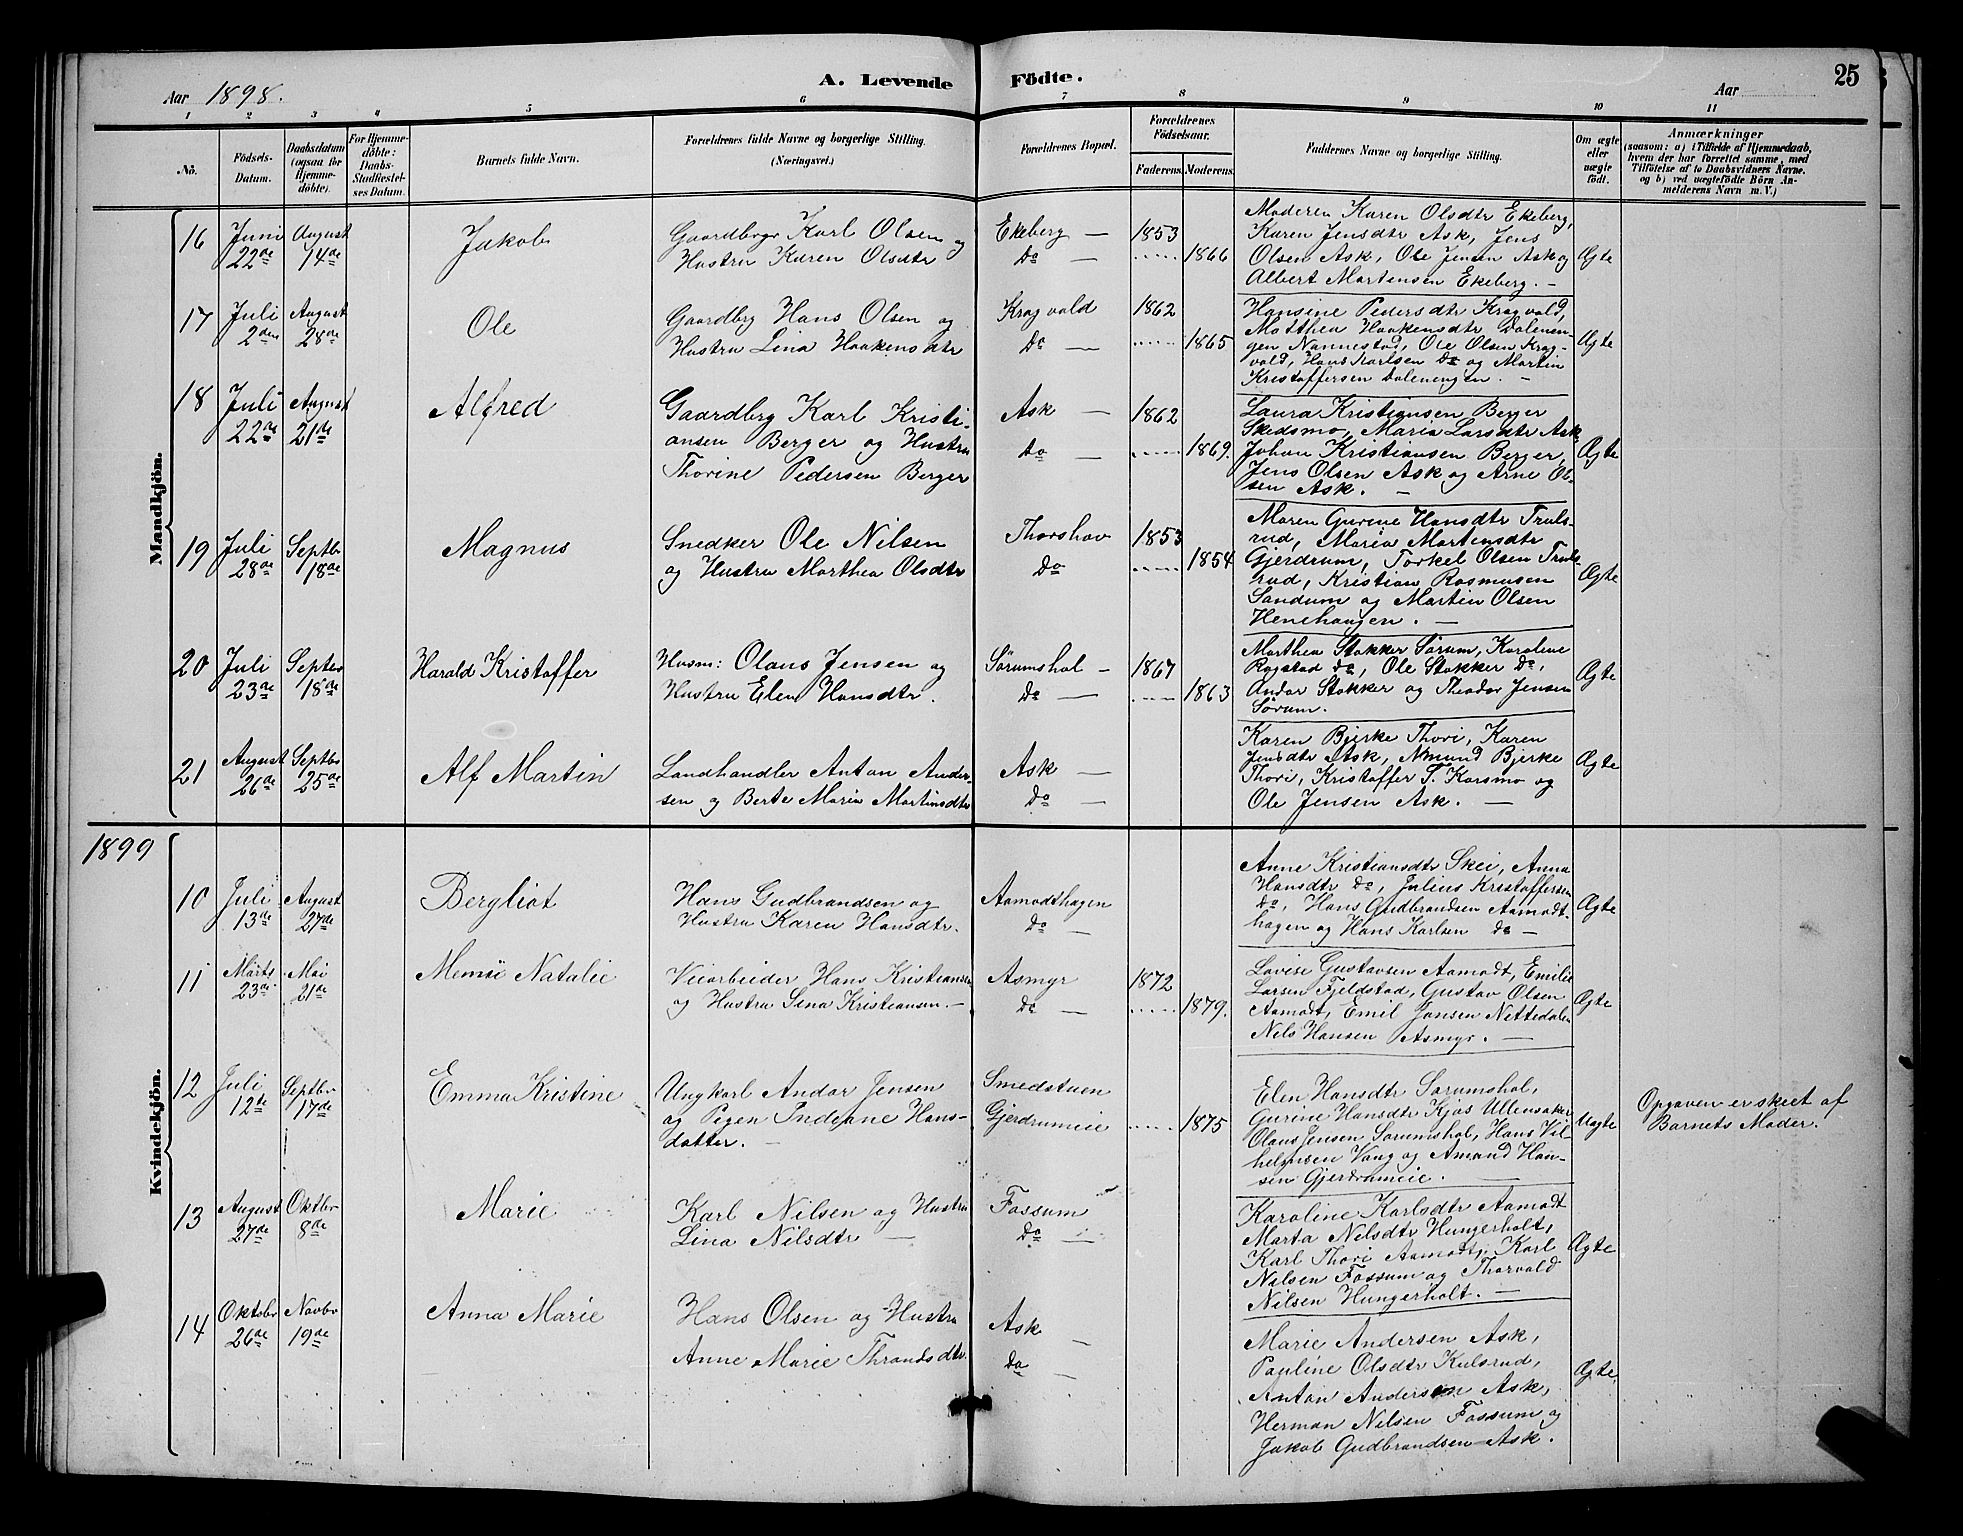 25
Aar 1898.
A. Levende Födte.
Aar
1 2 3 4 5 6 7 8 9 10 11
No.
Födsels-Datum.
Daabsdatum (ogsaa for Hjemmedöbte).
For Hjemmedöbte: Daabs-Stadfæstelses Datum.
Barnets fulde Navn.
Forældrenes fulde Navne og borgerlige Stilling.
(Næringsvei.)
Forældrenes Bopæl.
Forældrenes Födselsaar.
Faderens. Moderens.
Faddernes Navne og borgerlige Stilling.
Om ægte eller uægte födt.
Anmærkninger
(saasom: a) i Tilfælde af Hjemmedaab,
hvem der har forrettet samme, med
Tilföielse af to Daabsvidners Navne,
og b) ved uægtefödte Börn An-
melderens Navn m. V.)
Mandkjön.
16
Juni 22de
August 14de
Jakob
Gaardbrgr Karl Olsen og
Hustru Karen Olsdtr
Ekeberg —
Do —
1853
1866
Moderen Karen Olsdtr Ekeberg,
Karen Jensdtr Ask, Jens
Olsen Ask, Ole Jensen Ask og
Albert Martensen Ekeberg. —
Ægte
17
Juli 2den
August 28de
Ole
Gaardbrg Hans Olsen og
Hustru Lina Haakensdtr
Kragvold
Do —
1862
1865
Hansine Pedersdtr Kragvold,
Matthea Haakensdtr Dalenen-
gen Nannestad, Ole Olsen Krag-
vold, Hans Karlsen Do og Martin
Kristoffersen Dalenengen. —
Ægte
18
Juli 22de
August 21de
Alfred
Gaardbrg Karl Kristi-
ansen Berger og Hustru
Thorine Pedersen Berger
Ask —
Do —
1862
1869.
Laura Kristiansen Berger
Skedsmo, Maria Larsdtr Ask
Johan Kristiansen Berger,
Jens Olsen Ask og Arne Ol-
sen Ask. —
Ægte
19
Juli 28de
Septbr 18de
Magnus
Snedker Ole Nilsen
og Hustru Marthea Olsdtr
Thorshov
Do
1853
1854
Maren Gurine Hansdtr Truls-
rud, Maria Martensdtr
Gjerdrum, Torkel Olsen Truls-
rud, Kristian Rasmusen
Sandum og Martin Olsen
Henehaugen. —
Ægte
20
Juli 23de
Septbr 18de
Harald Kristoffer
Husm: Olaus Jensen og
Hustru Elen Hansdtr.
Sørumshol —
Do —
1867
1863
Marthea Stokker Sørum, Karoline
Rogstad Do, Ole Stokker Do,
Andor Stokker og Theodor Jensen
Sørum.
Ægte
21
August 26de
Septbr 25de
Alf Martin
Landhandler Anton Ander-
sen og Berte Maria Martinsdtr
Ask —
Do —
Karen Bjerke Thori, Karen
Jensdtr Ask, Amund Bjerke
Thori, Kristoffer T. Korsmo og
Ole Jensen Ask. —
Ægte
1899
Kvindekjön.
10
Juli 13de
August 27de
Bergliot
Hans Gudbrandsen og
Hustru Karen Hansdtr.
Aamodthagen
Do —
Anne Kristiansdtr Skei, Anna
Hansdtr Do, Julius Kristoffersen
Do, Hans Gudbrandsen Aamodt-
hagen og Hans Karlsen Do —
Ægte
11
Marts 23de
Mai 21de
Memsi Natalie
Veiarbeider Hans Kristiansen
og Hustru Lina Kristiansen. —
Asmyr
Do —
1872
1879.
Lovise Gustavsen Aamodt, Emilie
Larsen Fjeldstad, Gustav Olsen
Aamodt, Emil Jansen Nettedalen
Nils Hansen Asmyr. —
Ægte
12
Juli 12te
Septbr 17de
Emma Kristine
Ungkarl Andor Jensen
og Pigen Indeane Hans-
datter. —
Smedstuen
Gjerdrumeie
1875
Elen Hansdtr Sørumshol,
Gurine Hansdtr Kjos Ullensaker
Olaus Jensen Sørumshol, Hans Vil-
helmsen Vang og Amund Han-
sen Gjerdrumeie. —
Uægte
Opgaven er skeet af
Barnets Moder.
13
August 27de
Oktbr 8de
Marie
Karl Nilsen og Hustru
Lina Nilsdtr —
Fossum
Do —
Karoline Karlsdtr Aamodt
Marta Nilsdtr Hungerholt,
Karl Thori Aamodt, Karl
Nilsen Fossum og Thorvald
Nilsen Hungerholt. —
Ægte
14
Oktobr 26de
Novbr 19de
Anna Marie
Hans Olsen og Hustru
Anne Marie Throndsdtr
Ask —
Do —
Marie Andersen Ask,
Pauline Olsdtr Kulsrud,
Anton Andersen Ask,
Herman Nilsen Fossum og
Jakob Gudbrandsen Ask.
Ægte.